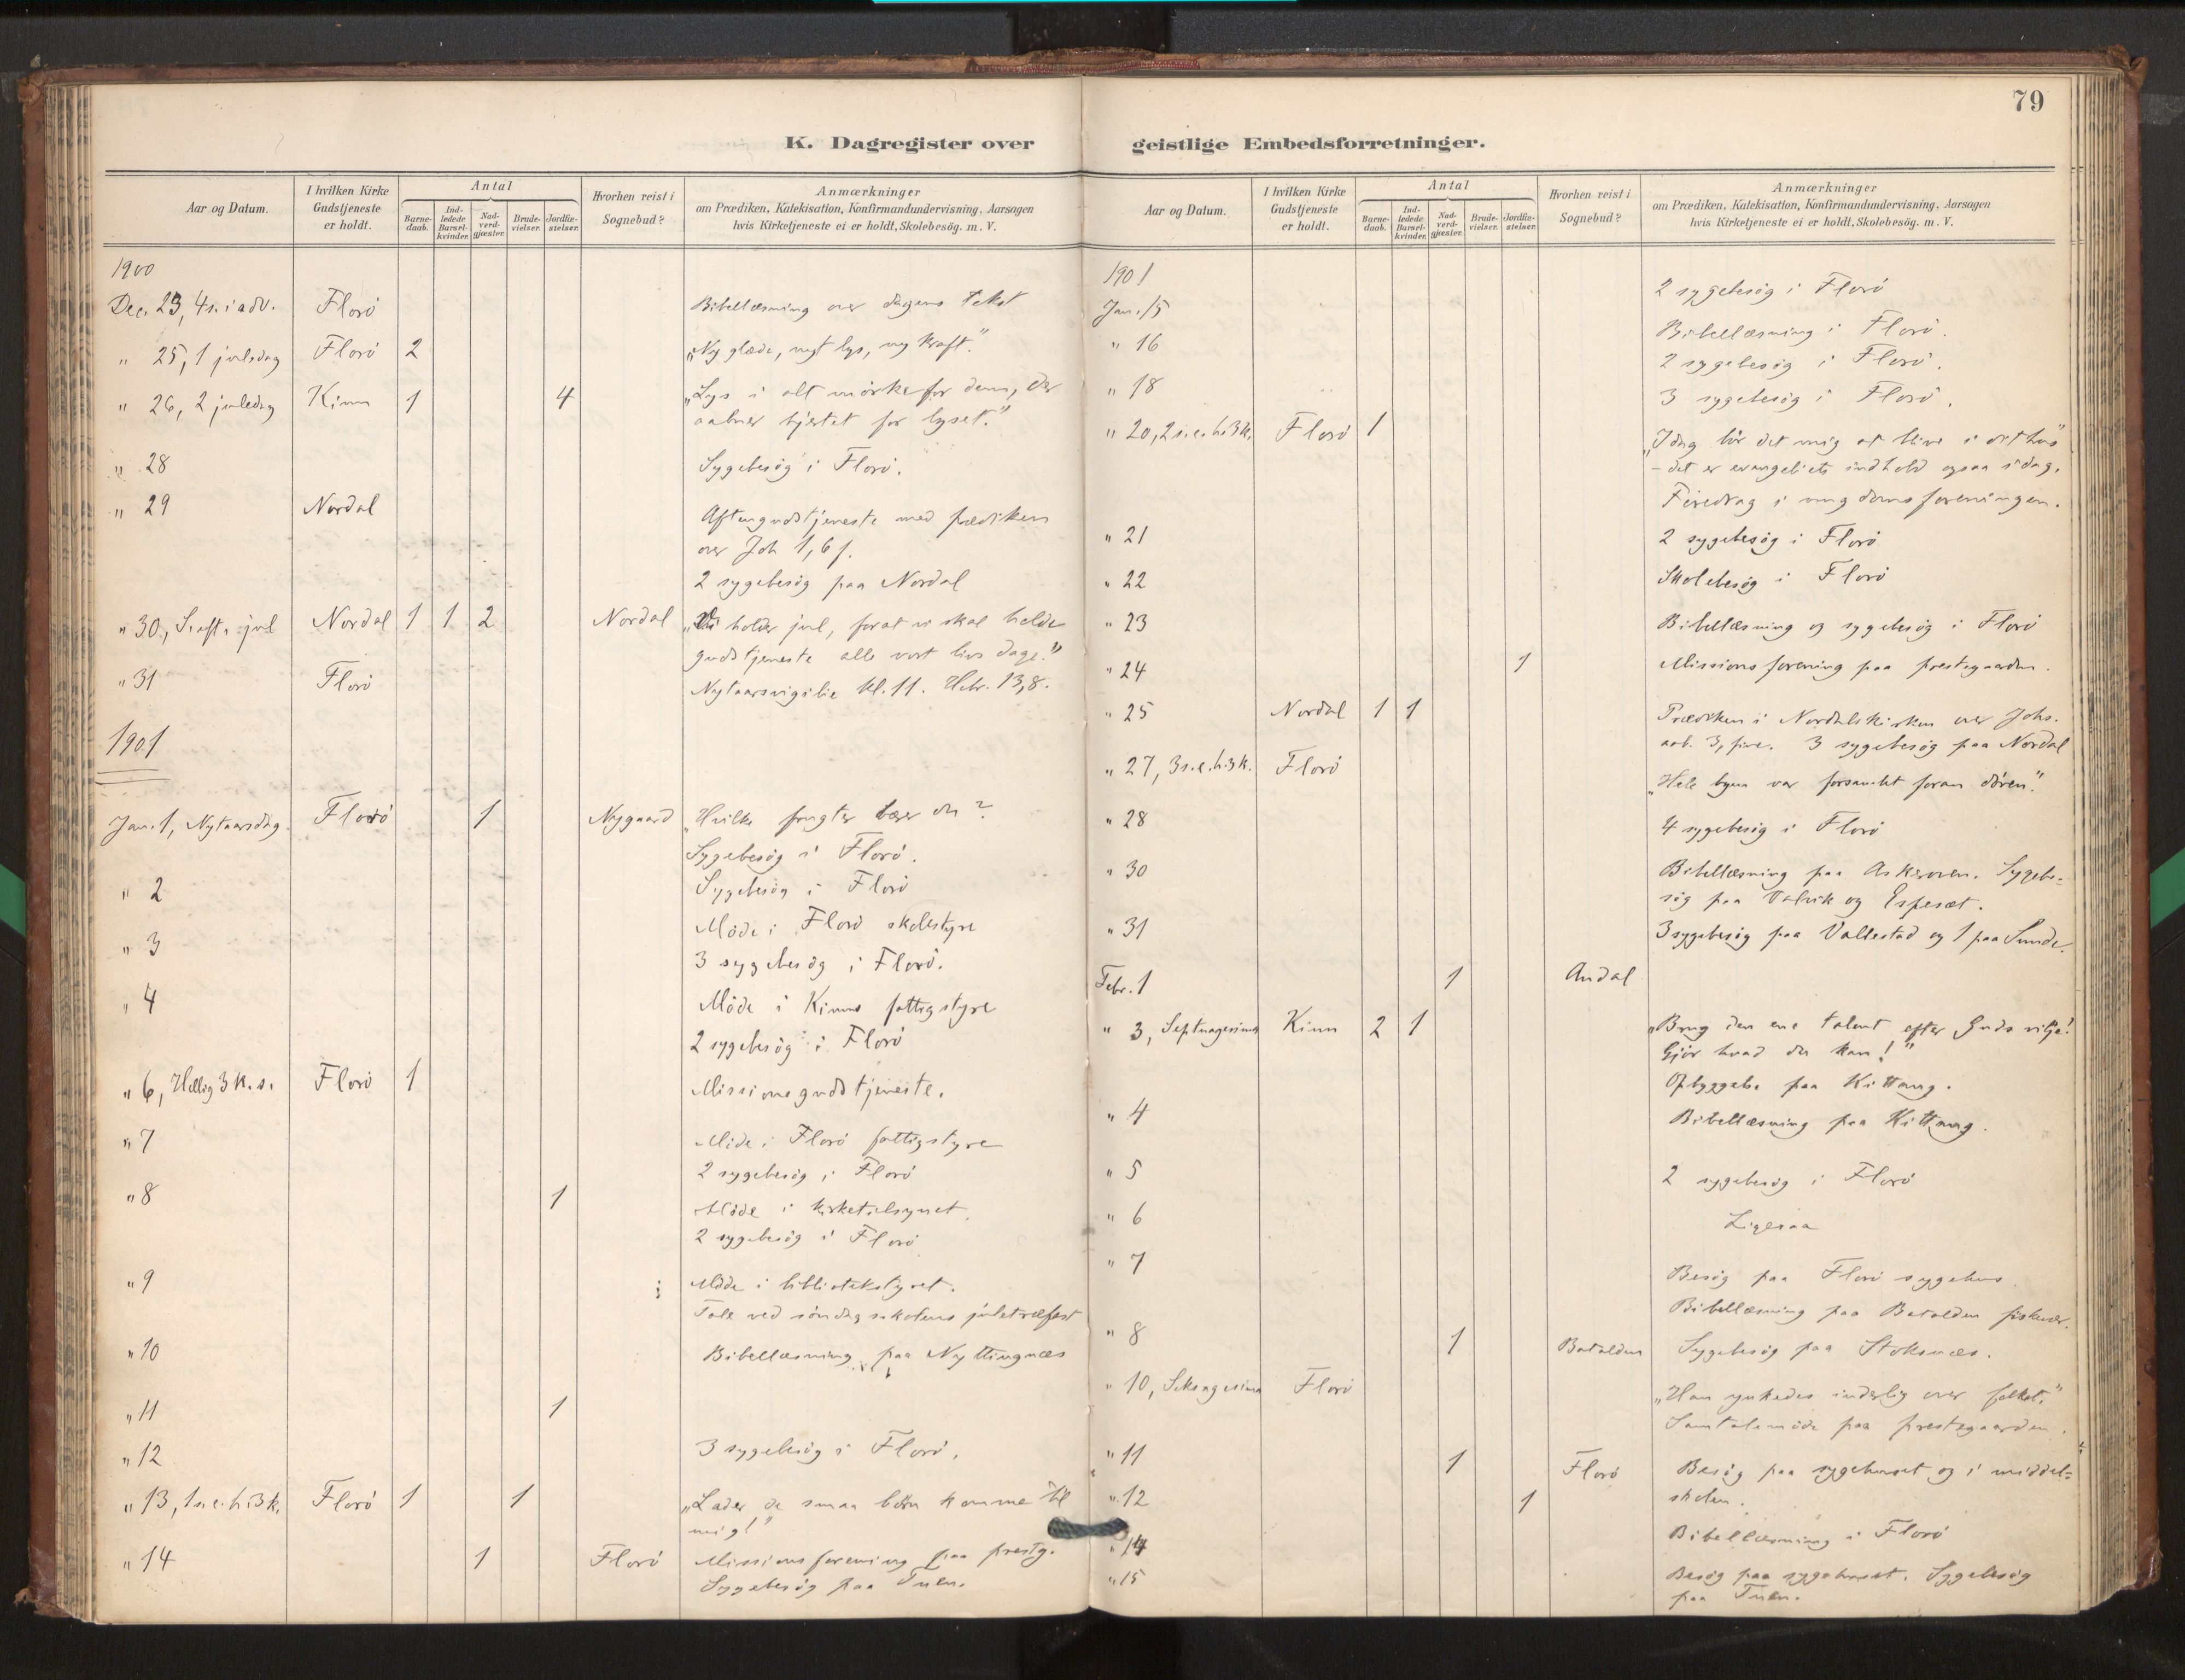 79
K. Dagregister over geistlige Embedsforretninger.
Aar og Datum.
I hvilken Kirke Gudstjeneste er holdt.
Antal
Barne-daab.
Ind-ledede Barsel-kvinder.
Nad-verd-gjæster.
Brude-vielser.
Jordfæ-stelser.
Hvorhen reist i Sognebud?
Anmærkninger
om Prædiken, Katekisation, Konfirmandundervisning, Aarsagen
hvis Kirketjeneste ei er holdt, Skolebesög. m. V.
1900
Dec. 23, 4 s. i adv. Florö Bibellæsning over dagens tekst
" 25, 1 juledag Florö 2 "Ny glæde, nyt lys, ny kraft."
" 26, 2 juledag Kinn 1 4 "Lys i alt mörke for dem, der
aabner hjertet for lyset."
" 28 Sygebesög i Florö.
" 29 Nordal Aftengudstjeneste med prædiken
over Joh 1,6 f.
2 sygebesög paa Nordal
" 30, S. eft. jul Nordal 1 1 2 Nordal "Vi holder jul, forat vi skal holde
gudstjeneste alle vort livs dage."
" 31 Florö Nytaarsvigilie kl. 11. Hebr. 13,8.
1901
Jan. 1, Nytaarsdag Florö 1 Nygaard "Hvilke frugter bærer du?
Sygebesög i Florö.
" 2 Sygebesög i Florö
Möde i Florö skolestyre
" 3 3 sygebesög i Florö.
" 4 Möde i Kinns fattigstyre
2 sygebesög i Florö
" 6, Hellig 3 k. s. Florö 1 Missionsgudstjeneste.
" 7 Möde i Florö fattigstyre
2 sygebesög i Florö
" 8 1 Möde i kirketilsynet.
2 sygebesög i Florö
" 9 Möde i bibliotekstyret.
Tale ved söndagsskolens juletræfest
" 10 Bibellæsning paa Nyttingnæs
" 11 1
" 12 3 sygebesög i Florö.
" 13, 1 s. e. h. 3 k. Florö 1 1 "Lader de smaa börn komme til
mig!"
" 14 1 Florö Missionsforening paa prestg.
Sygebesög paa Tuen.
Aar og Datum.
I hvilken Kirke Gudstjeneste er holdt.
Antal
Barne-daab.
Ind-ledede Barsel-kvinder.
Nad-verd-gjæster.
Brude-vielser.
Jordfæ-stelser.
Hvorhen reist i Sognebud?
Anmærkninger
om Prædiken, Katekisation, Konfirmandundervisning, Aarsagen
hvis Kirketjeneste ei er holdt, Skolebesög. m. V.
1901
Jan. 15 2 sygebesög i Florö
" 16 Bibellæsning i Florö.
2 sygebesög i Florö.
" 18 3 sygebesög i Florö.
" 20, 2 s. e. h. 3 k. Florö 1 "Idag bör det mig at blive i dit hus"
- det er evangeliets indhold ogsaa idag.
Foredrag i ungdomsforeningen.
" 21 2 sygebesög i Florö
" 22 Skolebesög i Florö
" 23 Bibellæsning og sygebesög i Florö
" 24 1 Missionsforening paa prestegaarden.
" 25 Nordal 1 1 Prædiken i Nordalskirken over Johs.
aab. 3, 3 sygebesög paa Nordal
" 27, 3 s. e. h. 3 k. Florö "Hele byen var forsamlet foran dören".
" 28 4 sygebesög i Florö
" 30 Bibellæsning paa Askroven. Sygebe-
sög paa og Espeset.
" 31 3 sygebesög paa Vallestad og 1 paa Sunde.
Febr. 1 1 Andal
" 3, Septuagesima Kinn 2 1 "Brug den ene talent efter Guds vilje!
Gjör hvad du kan!"
Opbyggelse paa Kittang.
" 4 Bibellæsning paa Kittang.
" 5 2 sygebesög i Florö
" 6 Ligesaa
" 7 Besög paa Florö sygehus.
Bibellæsning paa Batalden fiskevær.
" 8 1 Batalden Sygebesög paa Stoksnæs.
" 10, Seksagesima Florö "Han ynkedes inderlig over folket."
Samtalemöde paa prestegaarden.
" 11 1 Florö Besög paa sygehuset og i middel-
skolen.
" 12 1
" 14 Bibellæsning i Florö
" 15 Besög paa sygehuset. Sygebesög
paa Tuen.